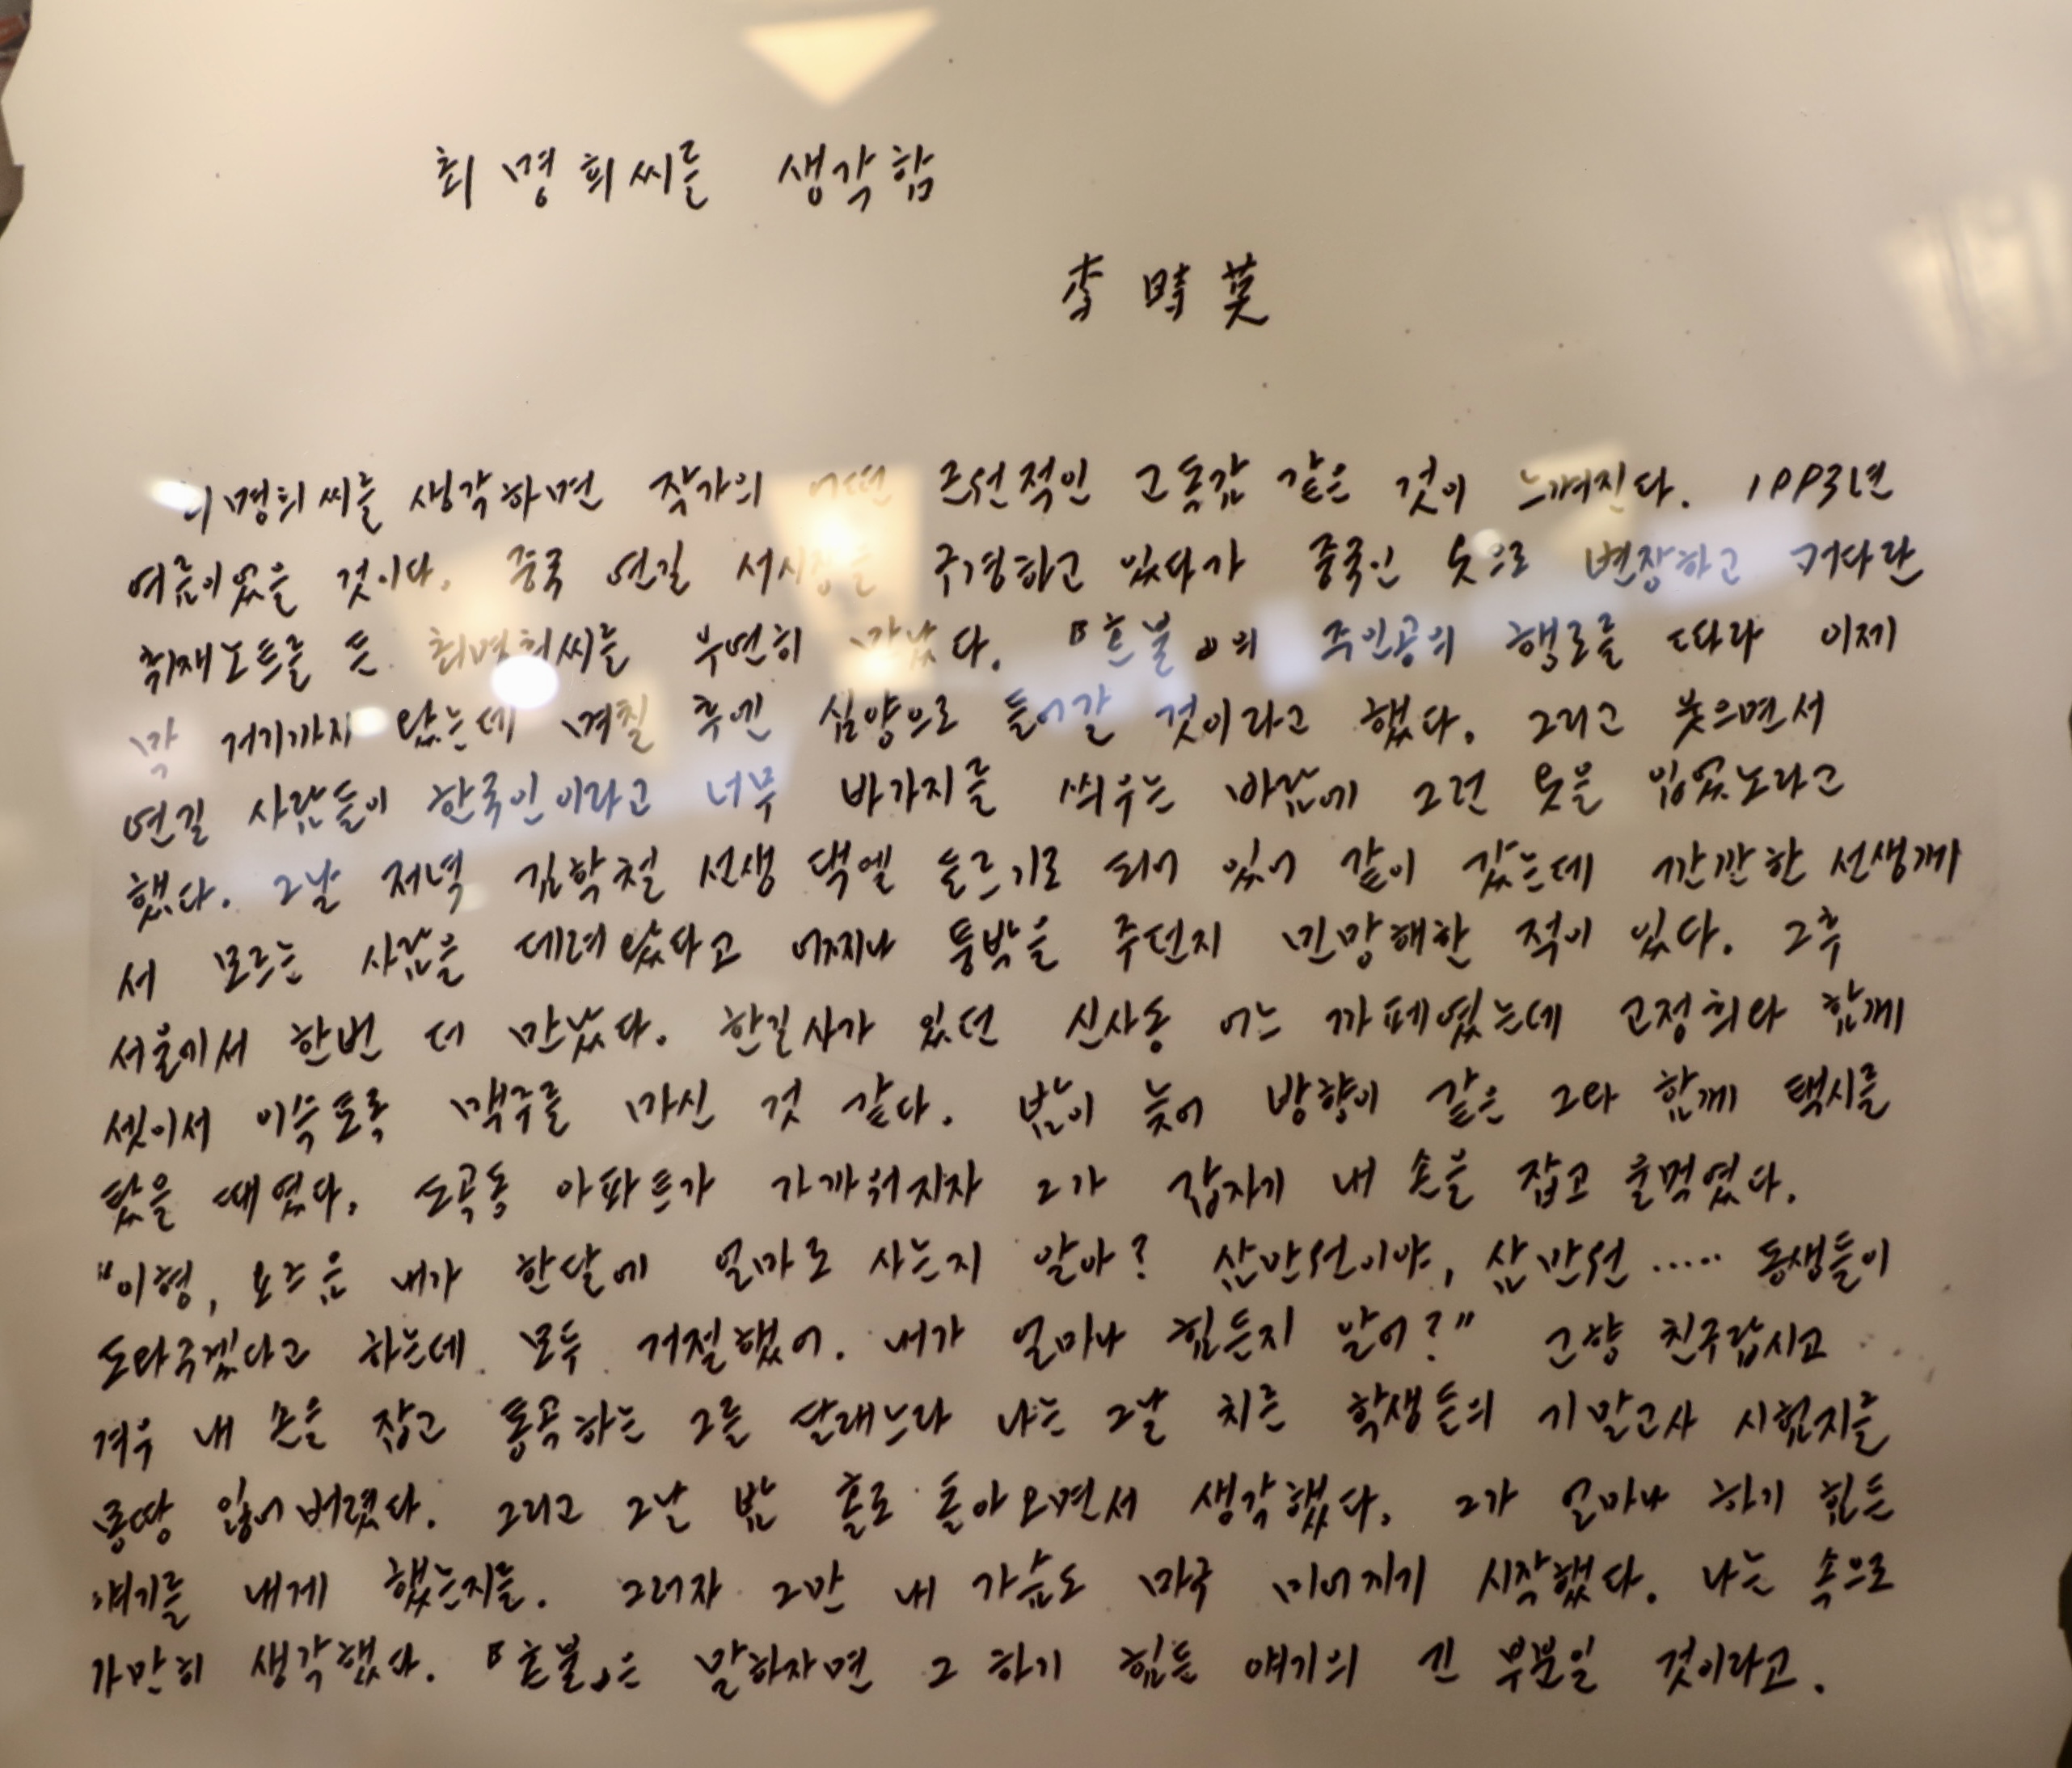 최명희씨를 생각함
李時英
최명희씨를 생각하면 작가의 어떤 근원적인 고독감 같은 것이 느껴진다. 1993년
여름이었을 것이다. 중국 연길 서시장을 구경하고 있다가 중국인 옷으로 변장하고 커다란
취재노트를 든 최명희씨를 우연히 만났다. 『혼불』의 주인공의 행로를 따라 이제
막 거기까지 왔는데 며칠 후엔 심양으로 들어갈 것이라고 했다. 그리고 웃으면서
연길 사람들이 한국인이라고 너무 바가지를 씌우는 바람에 그런 옷을 입었노라고
했다. 그날 저녁 김학철 선생 댁엘 들르기로 되어 있어 같이 갔는데 깐깐한 선생께
서 모르는 사람을 데려왔다고 어찌나 퉁박을 주던지 민망해한 적이 있다. 그후
서울에서 한번 더 만났다. 한길사가 있던 신사동 어느 까페였는데 고정희와 함께
셋이서 이슥토록 맥주를 마신 것 같다. 밤이 늦어 방향이 같은 그와 함께 택시를
탔을 때였다. 도곡동 아파트가 가까워지자 그가 갑자기 내 손을 잡고 울먹였다.
"이형, 요즈음 내가 한달에 얼마로 사는지 알아? 삼만원이야, 삼만원 ..... 동생들이
도와주겠다고 하는데 모두 거절했어. 내가 얼마나 힘든지 알어?" 고향 친구랍시고
겨우 내 손을 잡고 통곡하는 그를 달래느라 나는 그날 치른 학생들의 기말고사 시험지를
몽땅 잃어버렸다. 그리고 그날 밤 홀로 돌아오면서 생각했다. 그가 얼마나 하기 힘든
얘기를 내게 했는지를. 그러자 그만 내 가슴도 마구 미어지기 시작했다. 나는 속으로
가만히 생각했다. 『혼불』은 말하자면 그 하기 힘든 얘기의 긴 부분일 것이라고.